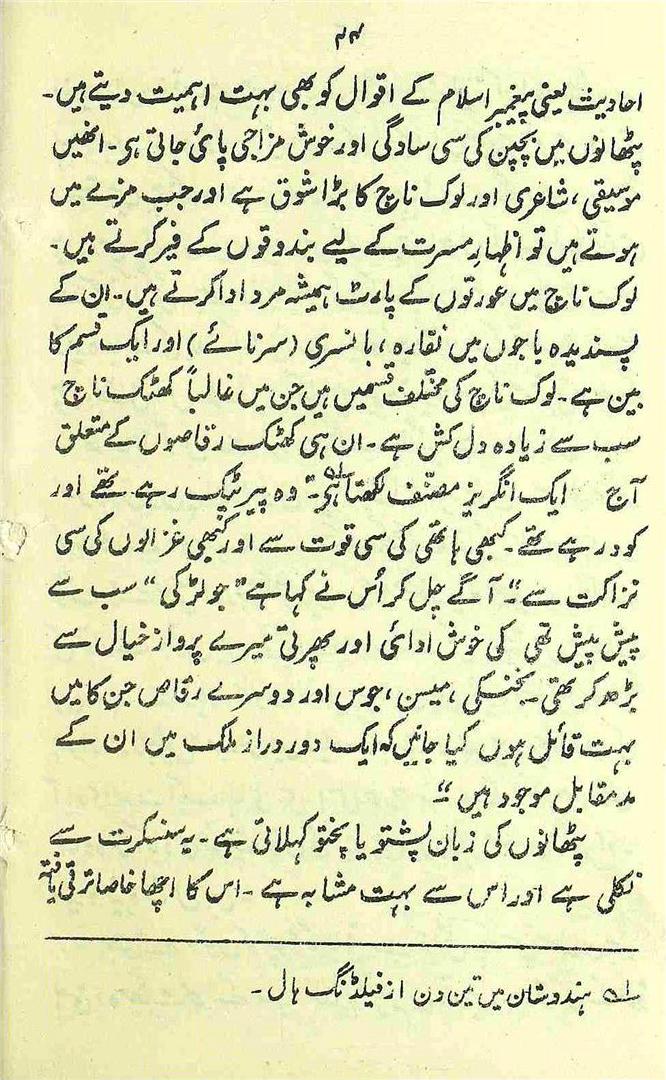 ۲۴
احادیث یعنی پیغمبر اسلام کے اقوال کو بھی بہت اہمیت دیتے ہیں۔
پٹھانوں میں بچپن کی سی سادگی اور خوش مزاجی پائی جاتی ہو۔ انھیں
موسیقی، شاعری اور لوک ناچ کا بڑا شوق ہے اور جب مزے میں
ہوتے ہیں تو اظہارِ مسرت کے لیے بندوقوں کے فیر کرتے ہیں۔
لوک ناچ میں عورتوں کے پارٹ ہمیشہ مرد ادا کرتے ہیں۔ ان کے
پسندیدہ باجوں میں نقارہ، بانسری (سرنائے) اور ایک قسم کا
بین ہے۔ لوک ناچ کی مختلف قسمیں ہیں جن میں غالباً کھٹک ناچ
سب سے زیادہ دل کش ہے۔ ان ہی کھٹک رقاصوں کے متعلق
آج ایک انگریز مصنف لکھتا ہو۔؎۱ "وہ پیر پٹک رہے تھے اور
کود رہے تھے۔ کبھی ہاتھی کی سی قوت سے اور کبھی غزالوں کی سی
نزاکت سے"۔ آگے چل کر اُس نے کہا ہے "جو لڑکی" سب سے
پیش پیش تھی کی خوش ادائی اور پھرتی میرے پرواز خیال سے
بڑھ کر تھی۔ نجنسکی، میسن، جوس اور دوسرے رقاص جن کا میں
بہت قائل ہوں کیا جانیں کہ ایک دور دراز ملک میں ان کے
مدمقابل موجود ہیں"۔
پٹھانوں کی زبان پشتو یا پختو کہلاتی ہے۔ یہ سنسکرت سے
نکلی ہے اور اس سے بہت مشابہ ہے۔ اس کا اچھا خاصا ترقی یافتہ
؎۱ ہندوستان میں تین دن از فیلڈنگ ہال۔